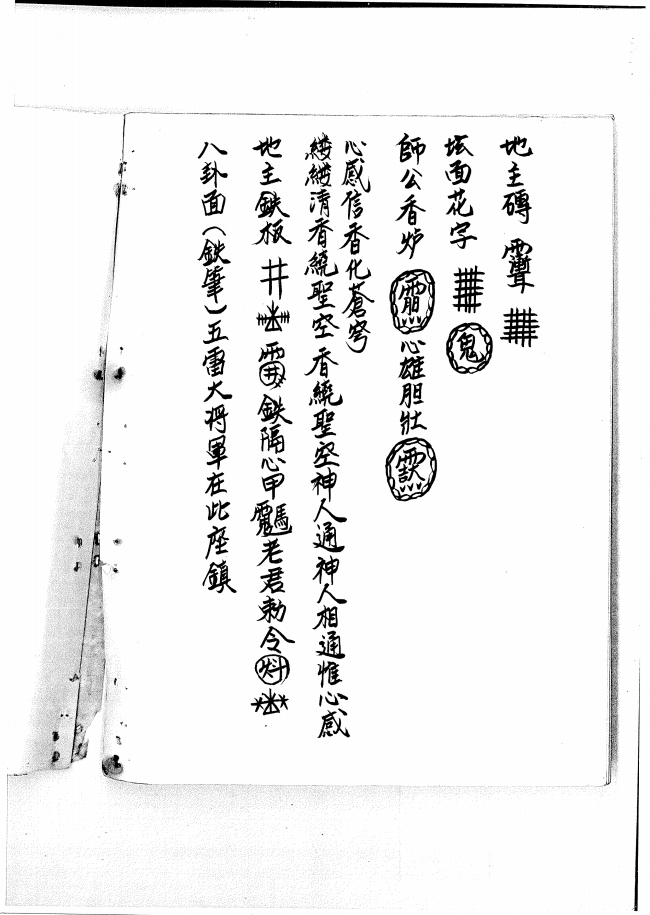 地主磚
坛面花字
師公香炉 心雄胆壮
心感信香化蒼穹
縷縷清香繞聖空香繞聖空神人通神人相通惟心感
地主鉄板 井 鉄隔心甲 老君勅令
八卦面(鉄筆)五雷大将軍在此座鎮